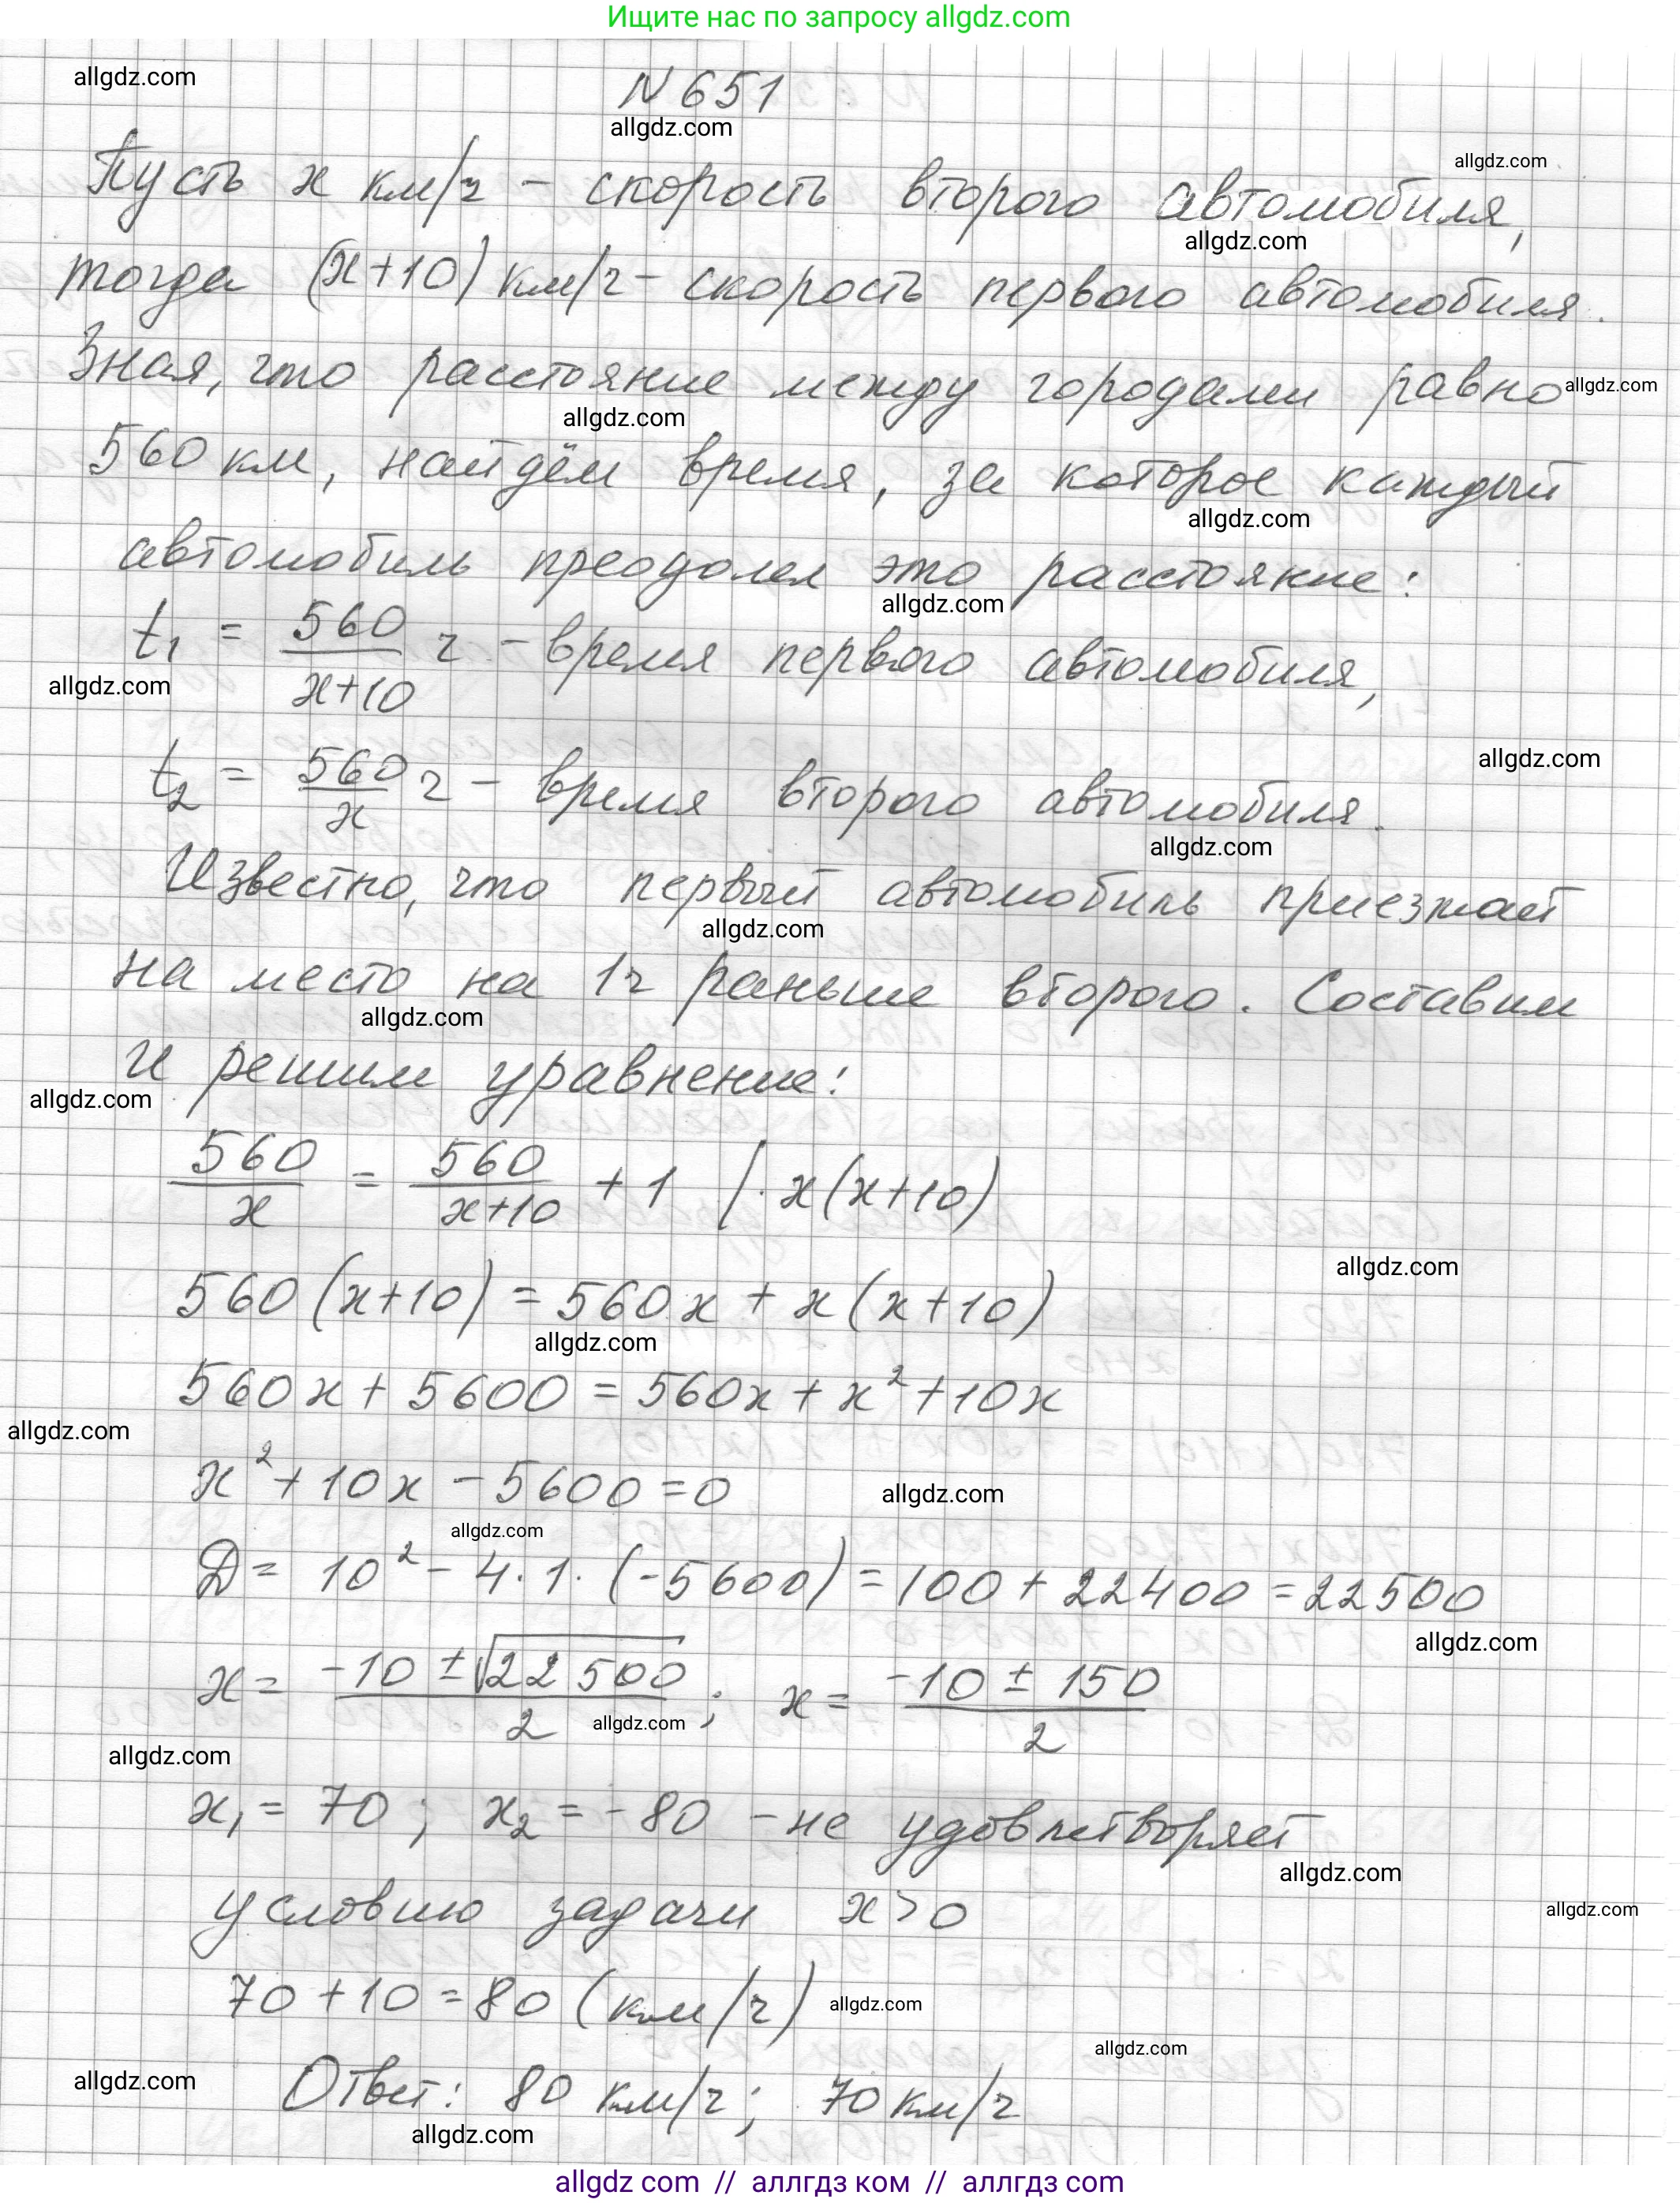 Ищите нас по запросу allgdz.com
allgdz.com
N 651
allgdz.com
allgdz.com
Пусть x км/ч – скорость второго автомобиля,
allgdz.com
тогда (x+10) км/ч – скорость первого автомобиля.
Зная, что расстояние между городами равно
allgdz.com
allgdz.com
560 км, найдём время, за которое каждый
allgdz.com
автомобиль преодолел это расстояние:
allgdz.com
t₁ = 560/(x+10) ч – время первого автомобиля,
allgdz.com
allgdz.com
t₂ = 560/x ч – время второго автомобиля.
allgdz.com
Известно, что первый автомобиль приезжает
allgdz.com
на место на 1ч раньше второго. Составим
allgdz.com
и решим уравнение:
allgdz.com
560/x = 560/(x+10) + 1 | · x(x+10)
allgdz.com
560(x+10) = 560x + x(x+10)
allgdz.com
560x + 5600 = 560x + x² + 10x
allgdz.com
x² + 10x – 5600 = 0
allgdz.com
allgdz.com
D = 10² – 4 · 1 · (-5600) = 100 + 22400 = 22500
allgdz.com
x = (-10 ± √22500)/2 ; x = (-10 ± 150)/2
allgdz.com
allgdz.com
x₁ = 70 ; x₂ = -80 – не удовлетворяет
allgdz.com
условию задачи x > 0
allgdz.com
70 + 10 = 80 (км/ч)
allgdz.com
allgdz.com
allgdz.com
Ответ: 80 км/ч; 70 км/ч
allgdz.com
allgdz com // аллгдз ком // allgdz com